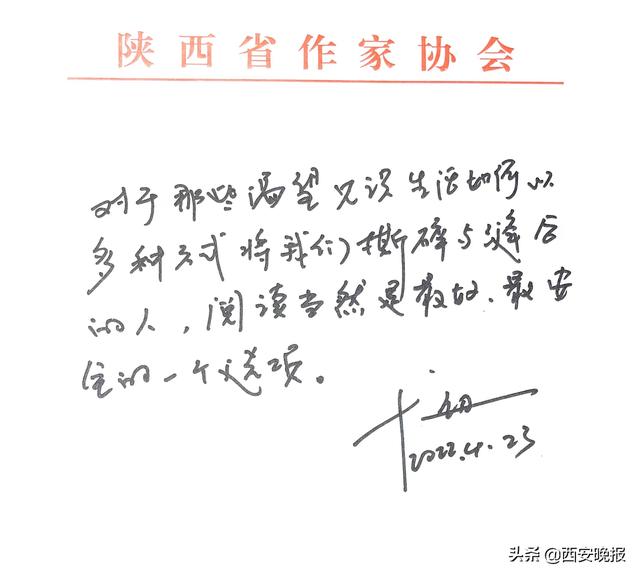 陕西省作家协会
对于那些渴望见识生活如何以
多种方式将我们撕碎与缝合
的人，阅读当然是最好、最安
全的一个选项。
2022.4.23
头条 @西安晚报